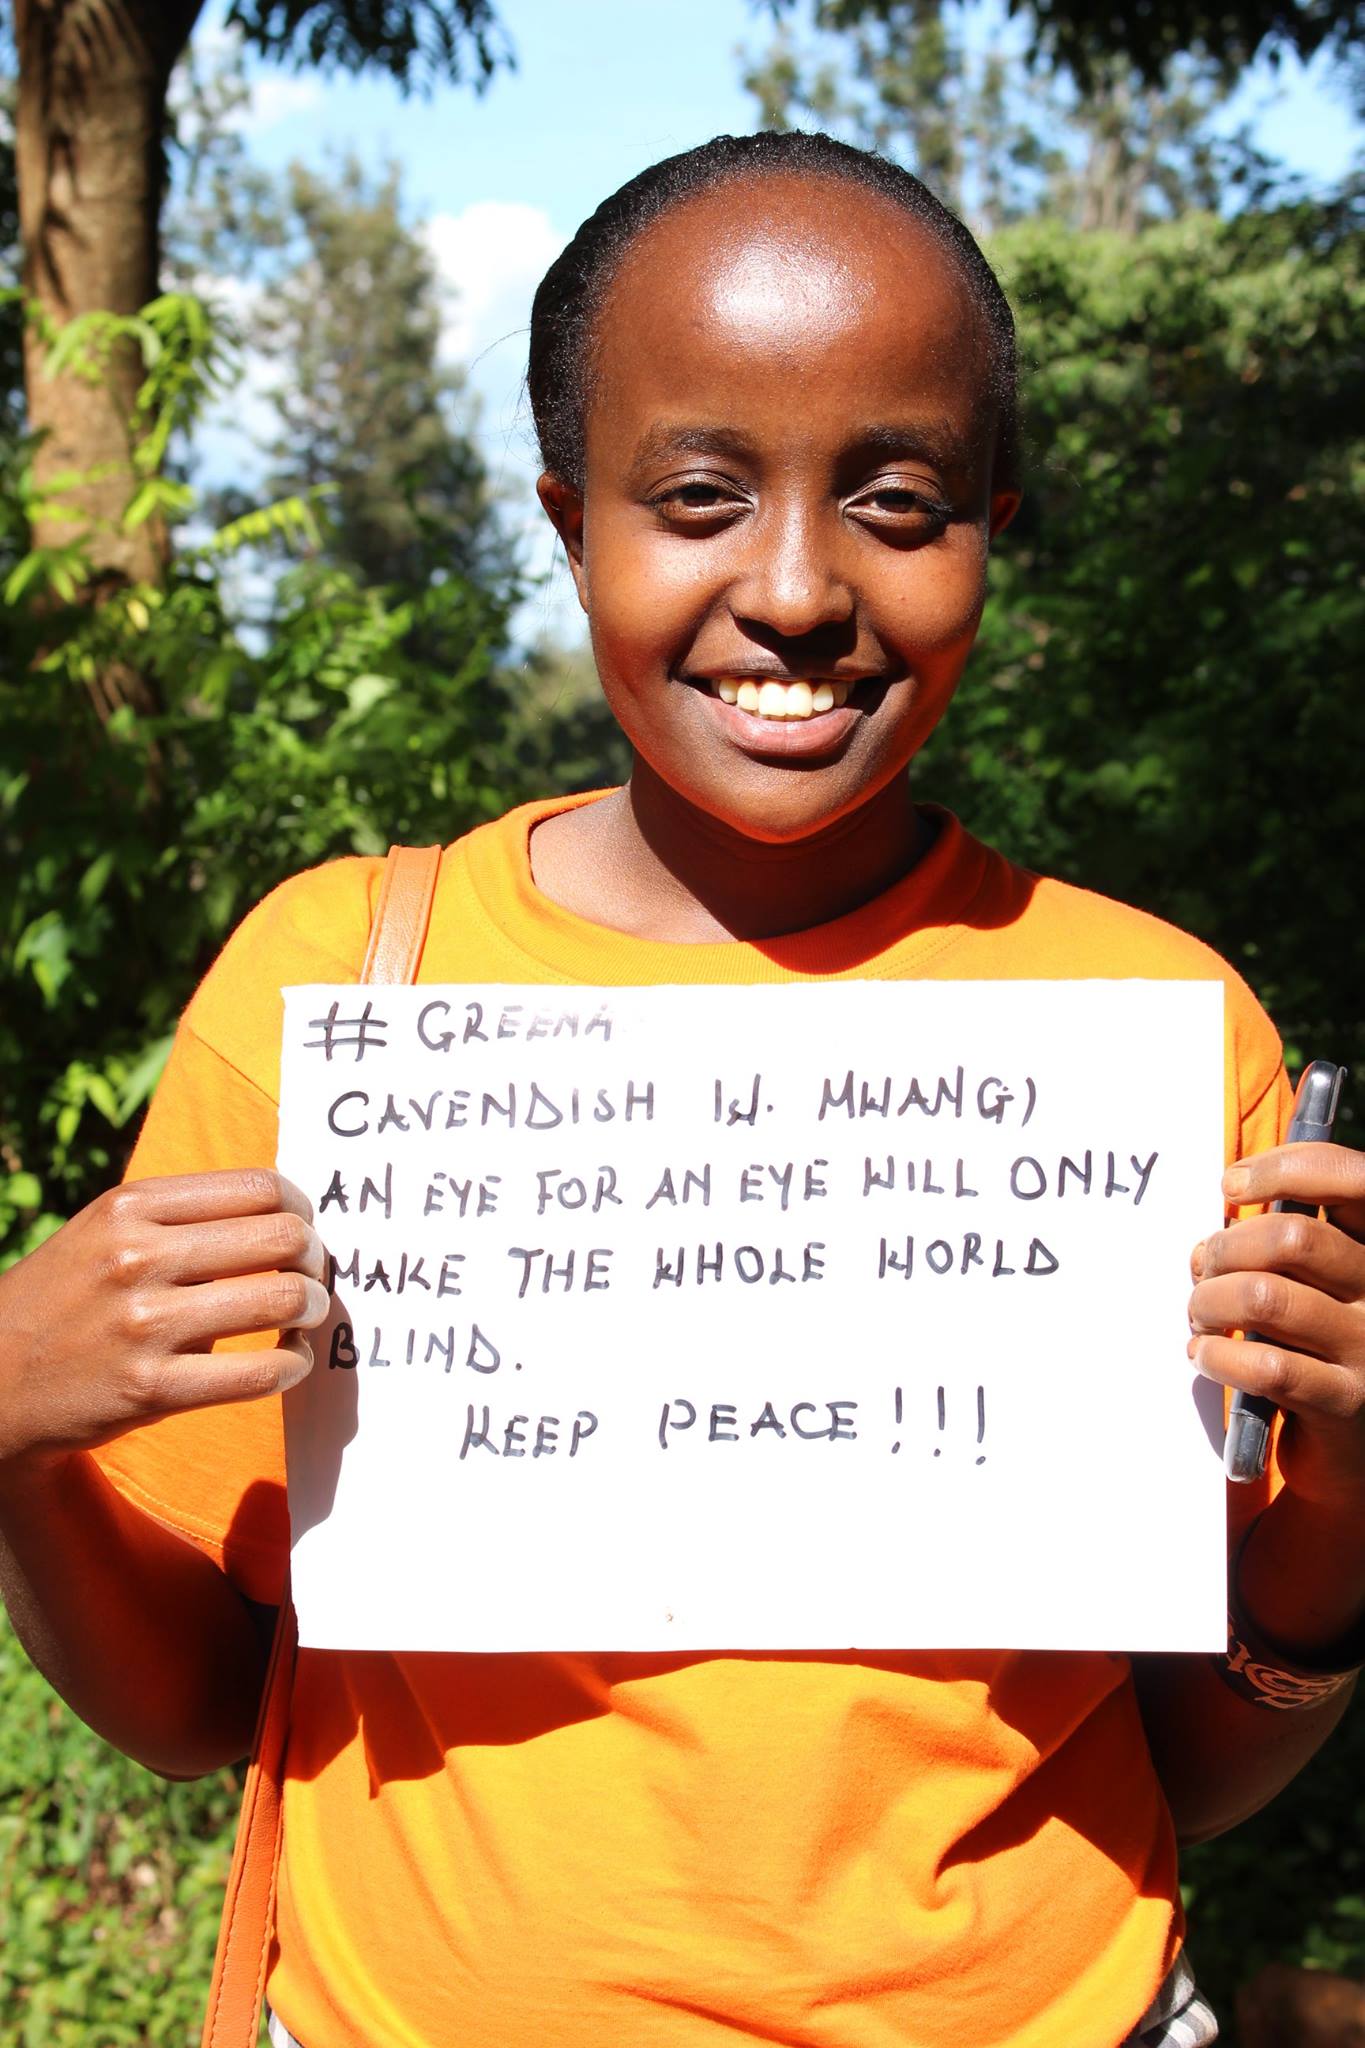 # GREENA
CAVENDISH W. MWANGI
AN EYE FOR AN EYE WILL ONLY
MAKE THE WHOLE WORLD
BLIND.
KEEP PEACE!!!